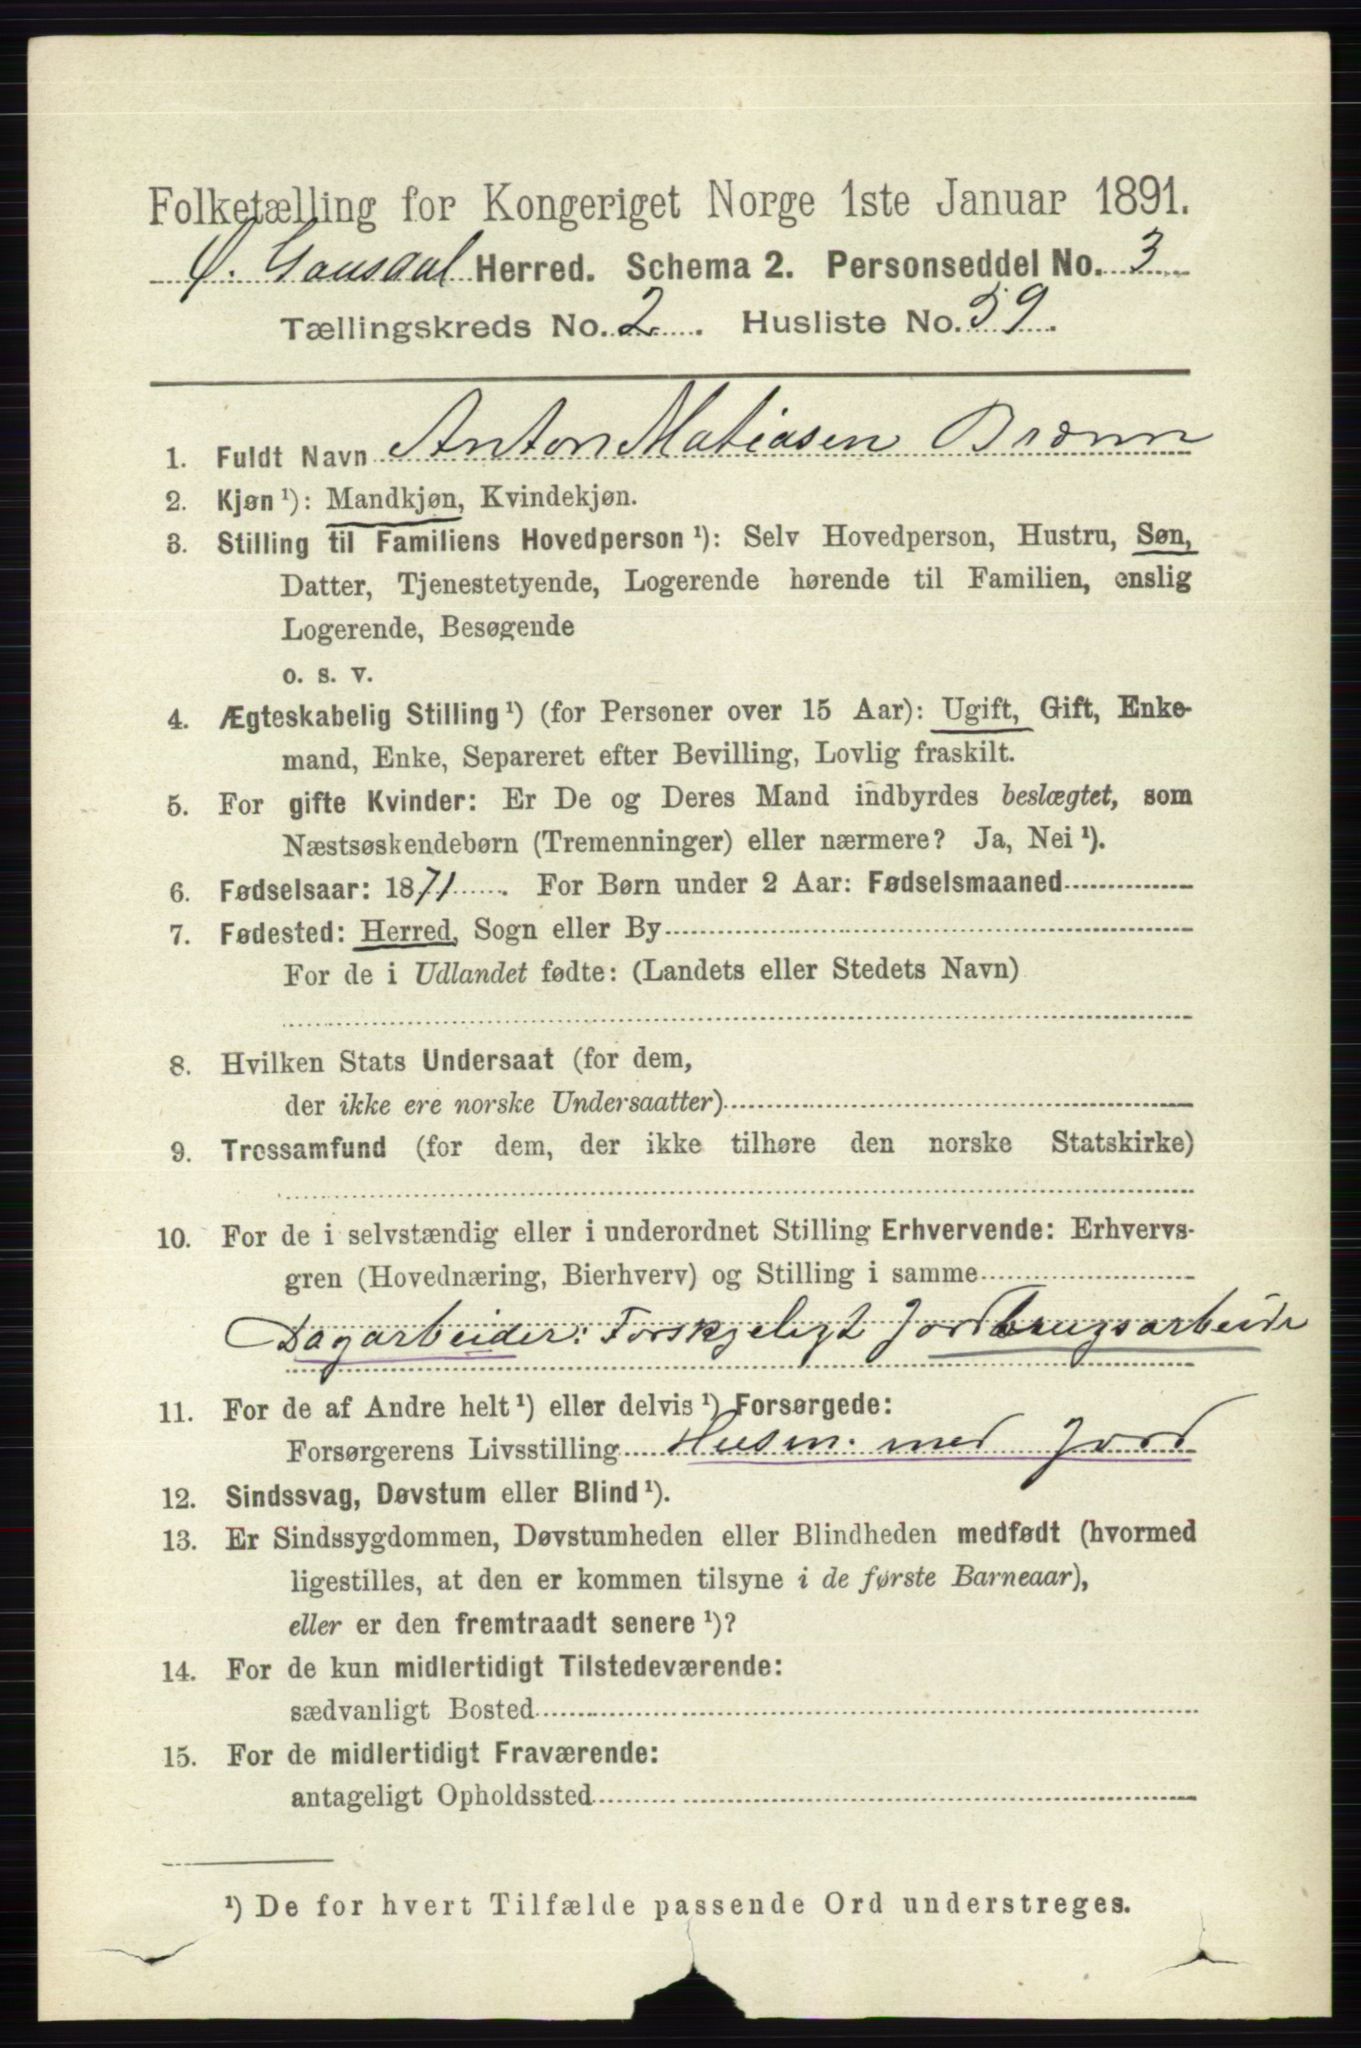 Folketælling for Kongeriget Norge 1ste Januar 1891.
Ø. Gausdal Herred. Schema 2. Personseddel No. 3
Tællingskreds No. 2. Husliste No. 59.
1. Fuldt Navn Anton Matiasen Brænn
2. Kjøn ¹): Mandkjøn, Kvindekjøn.
3. Stilling til Familiens Hovedperson ¹): Selv Hovedperson, Hustru, Søn,
Datter, Tjenestetyende, Logerende hørende til Familien, enslig
Logerende, Besøgende
o. s. v.
4. Ægteskabelig Stilling ¹) (for Personer over 15 Aar): Ugift, Gift, Enke-
mand, Enke, Separeret efter Bevilling, Lovlig fraskilt.
5. For gifte Kvinder: Er De og Deres Mand indbyrdes beslægtet, som
Næstsøskendebørn (Tremenninger) eller nærmere? Ja, Nei ¹).
6. Fødselsaar: 1871. For Børn under 2 Aar: Fødselsmaaned
7. Fødested: Herred, Sogn eller By
For de i Udlandet fødte: (Landets eller Stedets Navn)
8. Hvilken Stats Undersaat (for dem,
der ikke ere norske Undersaatter)
9. Trossamfund (for dem, der ikke tilhøre den norske Statskirke)
10. For de i selvstændig eller i underordnet Stilling Erhvervende: Erhvervs-
gren (Hovednæring, Bierhverv) og Stilling i samme
Dagarbeider: Forskjeligt Jordbrugsarbeide
11. For de af Andre helt ¹) eller delvis ¹) Forsørgede:
Forsørgerens Livsstilling Husm. med Jord
12. Sindssvag, Døvstum eller Blind ¹).
13. Er Sindssygdommen, Døvstumheden eller Blindheden medfødt (hvormed
ligestilles, at den er kommen tilsyne i de første Barneaar),
eller er den fremtraadt senere ¹)?
14. For de kun midlertidigt Tilstedeværende:
sædvanligt Bosted
15. For de midlertidigt Fraværende:
antageligt Opholdssted
¹) De for hvert Tilfælde passende Ord understreges.